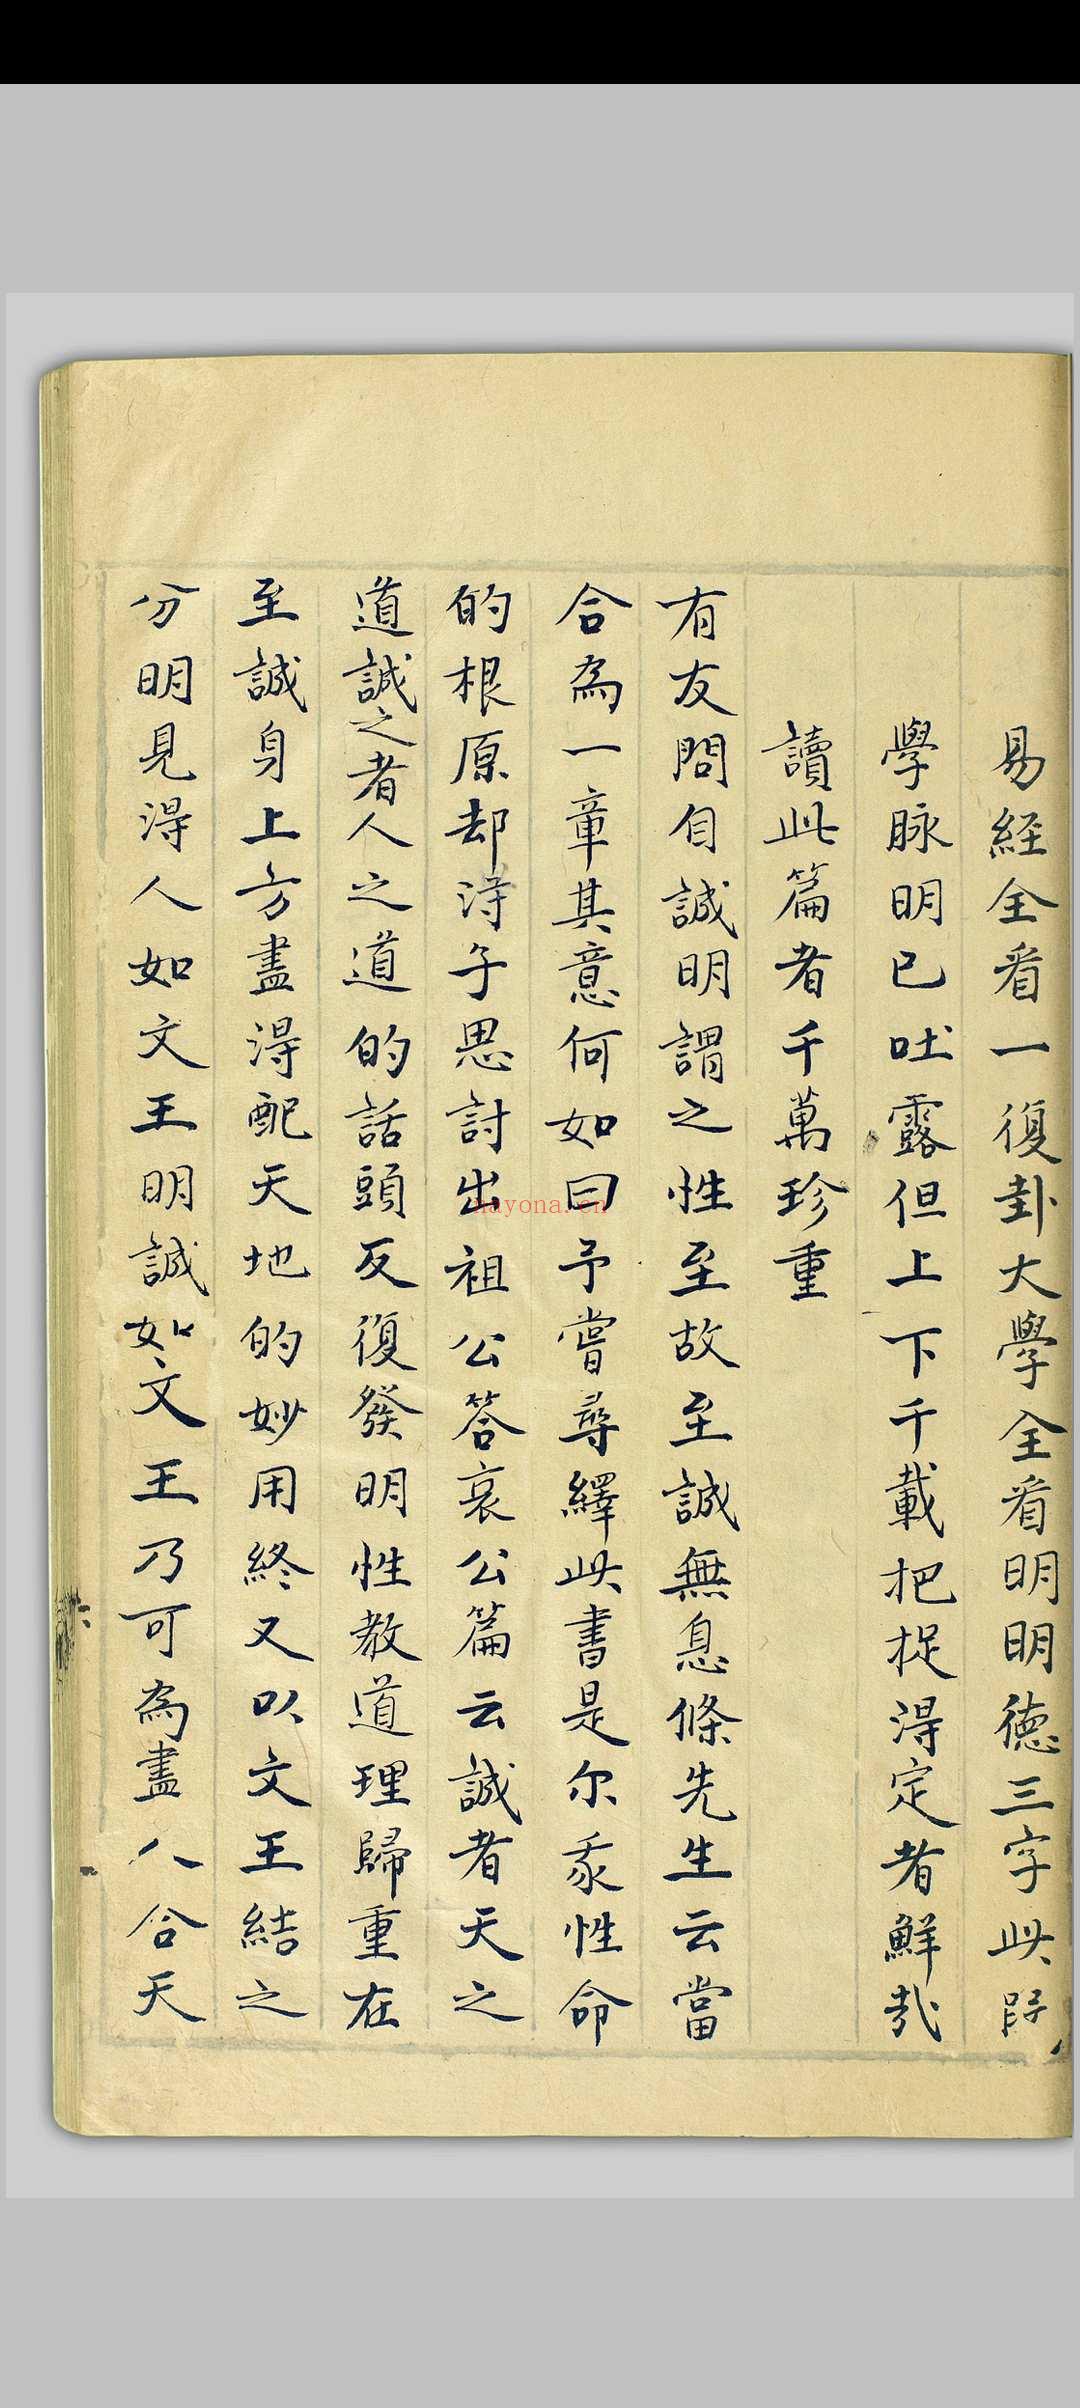 易経全看一復卦大學全看明明德三字此段
學脉明已吐露但上下千載把捉得定者鮮哉
讀此篇者千萬珍重
有友問自誠明謂之性至故至誠無息條先生云當
合為一章其意何如曰予嘗尋繹此書是尔我性命
的根原却淂子思討出祖公答哀公篇云誠者天之
道誠之者人之道的話頭反復發明性教道理歸重在
至誠身上方盡淂配天地的妙用終又以文王結之
分明見淂人如文王明誠如文王乃可為盡人合天
nayona.cn